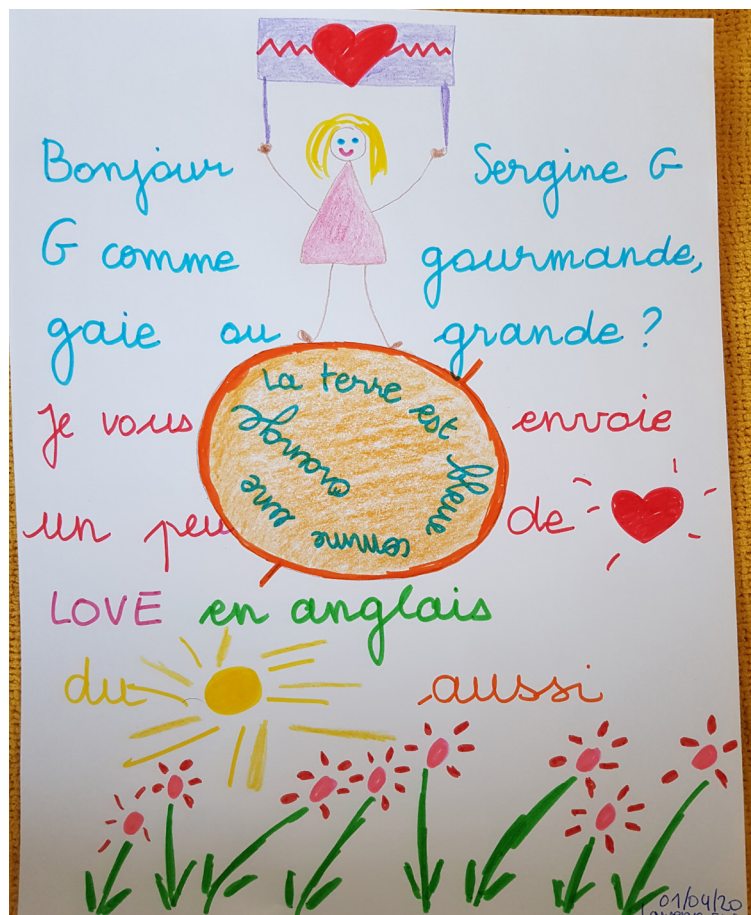 Bonjour Sergine G
G comme gourmande,
gaie ou grande ?
La terre est bleue comme une orange
Je vous envoie
un peu de
LOVE en anglais
du aussi
01/04/20